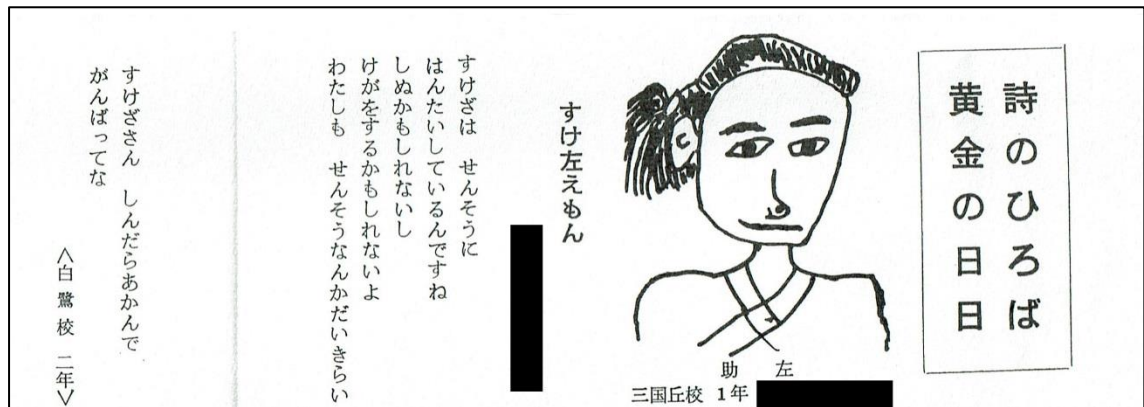 詩のひろば
黄金の日日
助左
三国丘校 1年
すけ左えもん
すけざは せんそうに
はんたいしているんですね
しぬかもしれないし
けがをするかもしれないよ
わたしも せんそうなんかだいきらい
すけざさん しんだらあかんで
がんばってな
<白鷺校 二年>